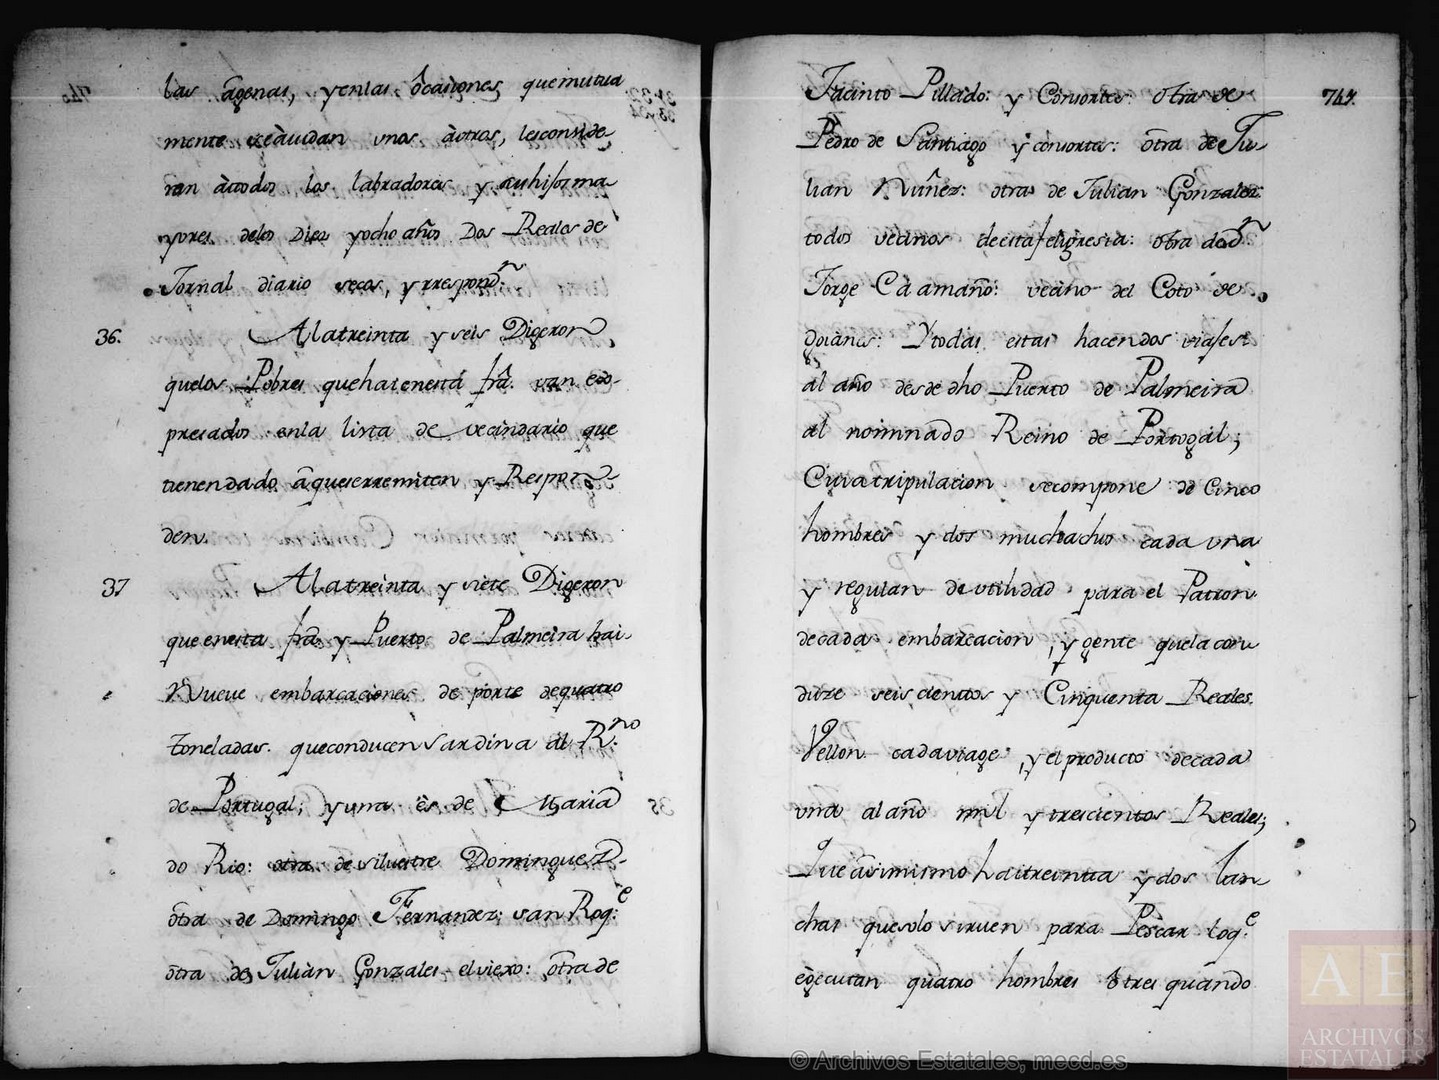 las agenas, y en las òcasiones, que mutua
mente se àiudan unos àotros, les conside-
ran àtodos los labradores y sus hijos ma-
yores delos Diez yocho años Dos Reales de
Jornal diario secos, y rrespondn
36. Alatreinta y seis Digeron
quelos Pobres que hai enestá fra. van exp-
presados enla lista de vecindario que
tienen dado âque serremiten y Respon-
den.
37 Alatreinta y siete Digeron
que enesta fra y Puerto de Palmeira hai-
Nueve embarcaciones de porte dequatro
toneladas. queconducen sardina al Rno
de Portugal; y una ès de Maria
do Rio: otra de silvestre Dominguez
òtra de Domingo Fernandez: san Roqe
òtra de Juliàn Gonzales el viexo: òtra de
767.
Jacinto Pillado: y Consortes: Otra de
Pedro de Santiago y consortes: òtra de Ju-
lian Nuñez: otra de Julian Gonzalez
todos vecinos de esta feligresia: òtra de dn
Jorge Cáamaño: vecino del Coto de
Goiànes: Y todas estas hacen dos viajes
al año desde dho Puerto de Palmeira
al nominado Reino de Portugal;
Cuia tripulacion secompone de Cinco
hombres y dos muchachos cada una
y regulan de utilidad para el Patron
de cada embarcacion, y gente quela con-
duze seiscientos y Cinquenta Reales
Vellon cada viage, y el producto decada
una al año mil y trescientos Reales;
Que asimismo hai treintta y dos lan
chas que solo sirven para Pescar loqe
egecutan quatro hombres ò tres quando
© Archivos Estatales, mecd.es
AE
ARCHIVOS
ESTATALES